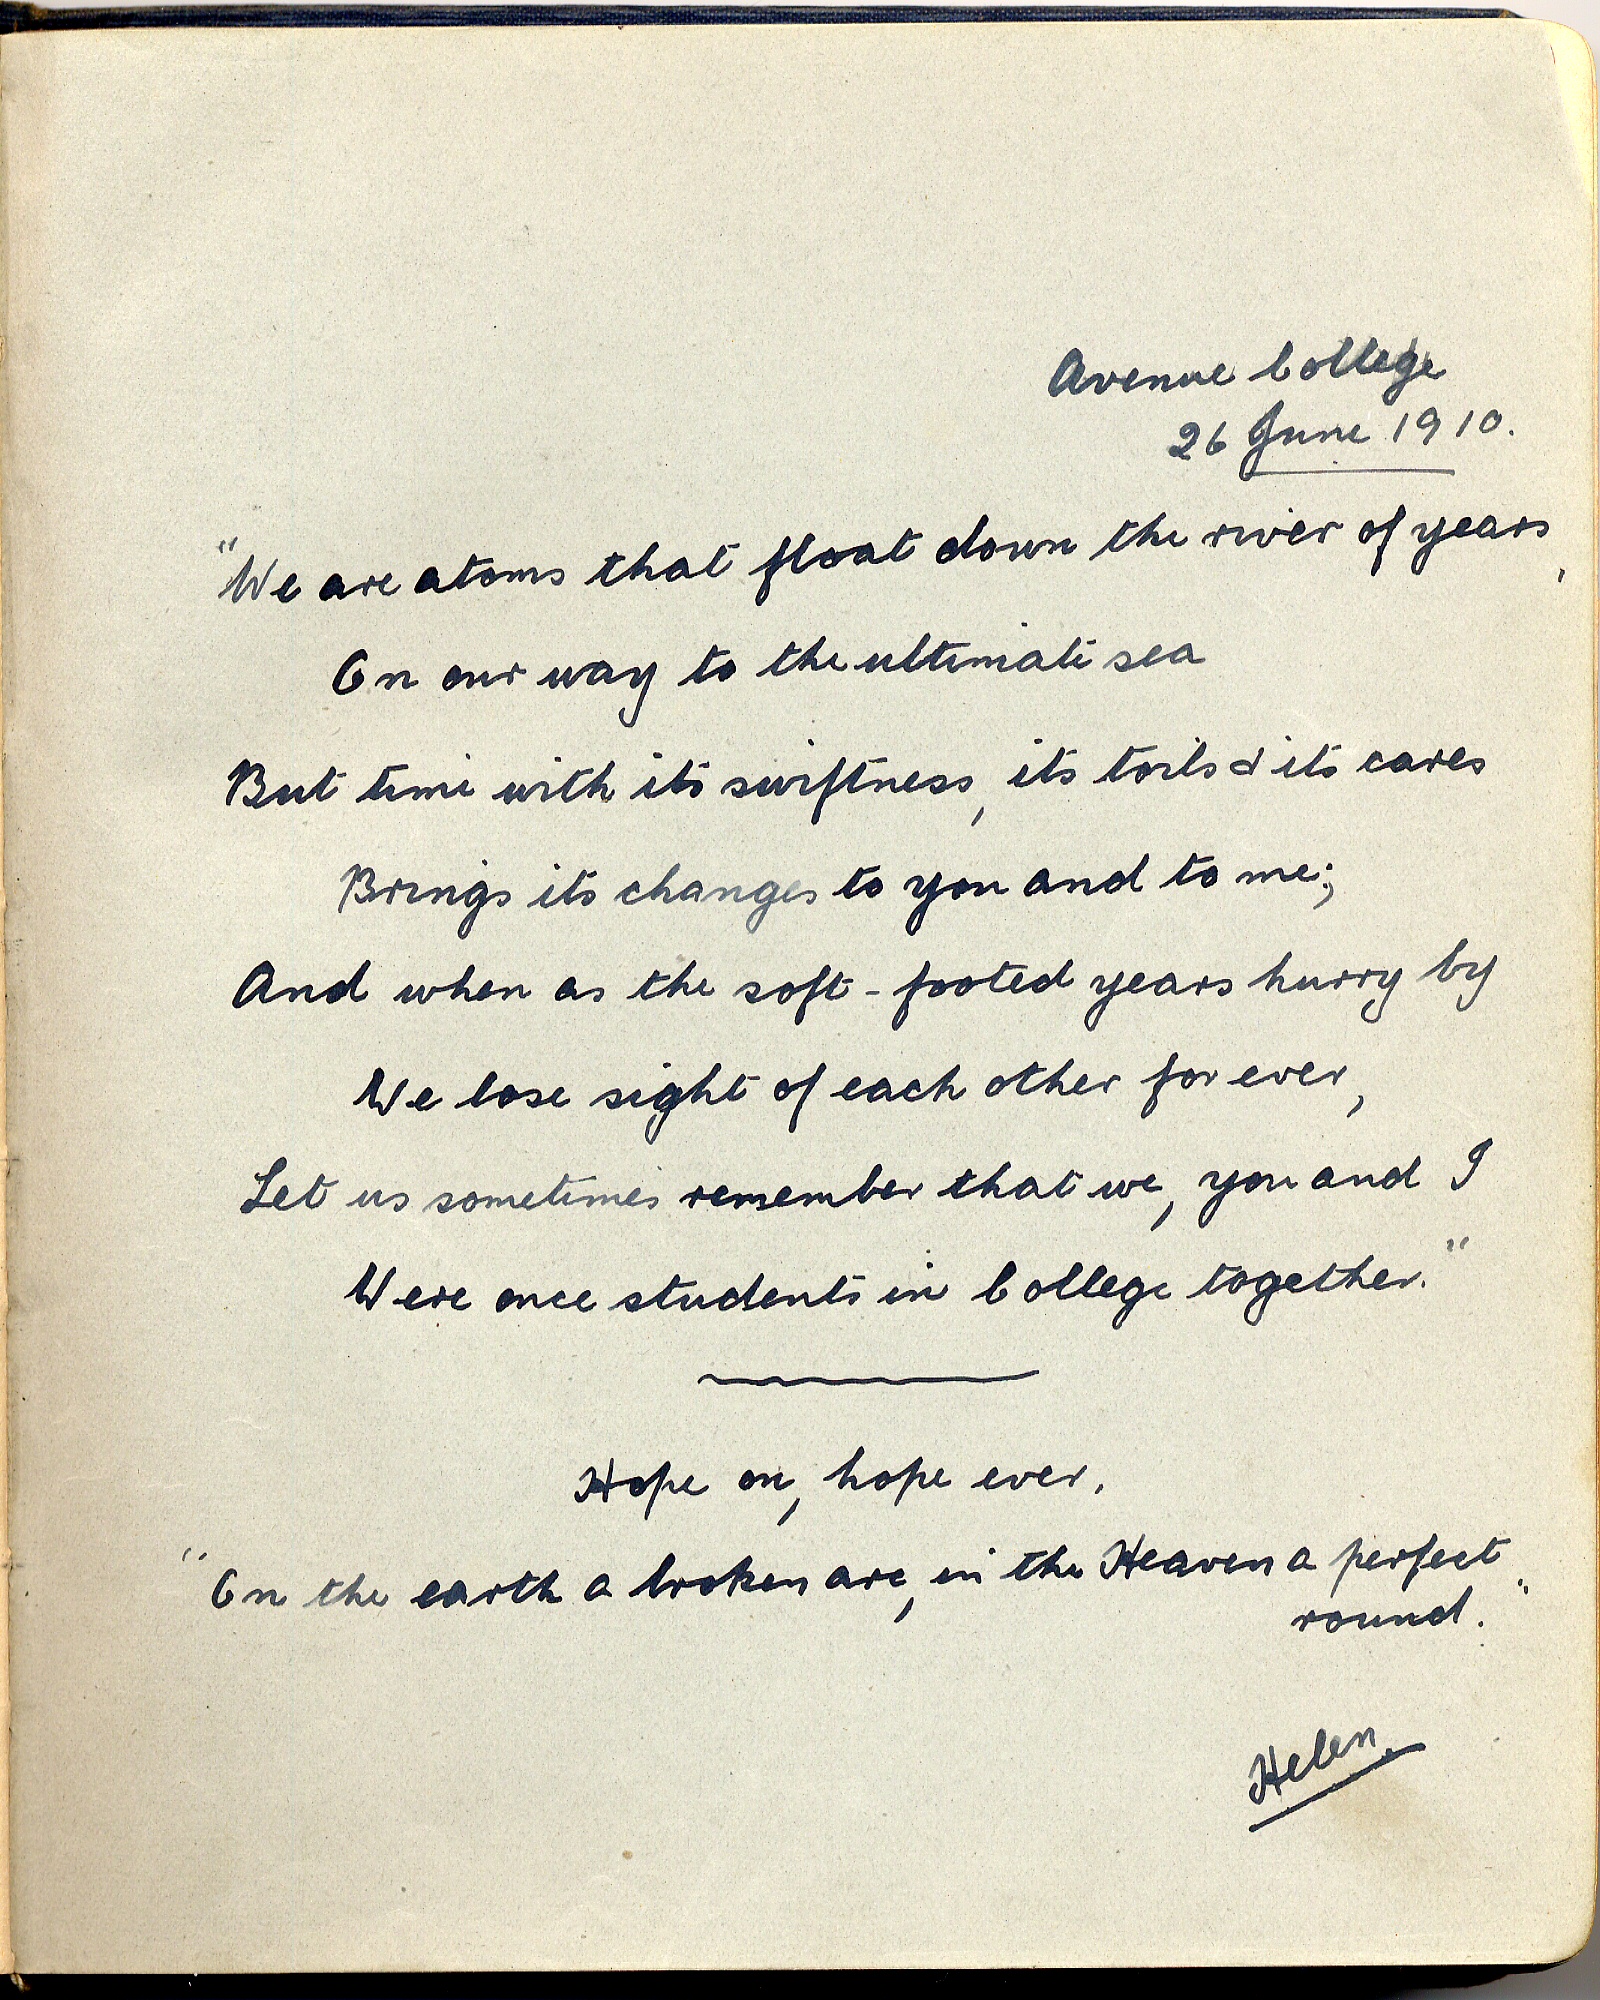 Avenue College
26 June 1910.
"We are atoms that float down the river of years,
On our way to the ultimate sea
But time with its swiftness, its toils & its cares
Brings its changes to you and to me;
And when as the soft-footed years hurry by
We lose sight of each other for ever,
Let us sometimes remember that we, you and I
Were once students in College together."
Hope on, hope ever.
"On the earth a broken arc, in the Heaven a perfect
round."
Helen.